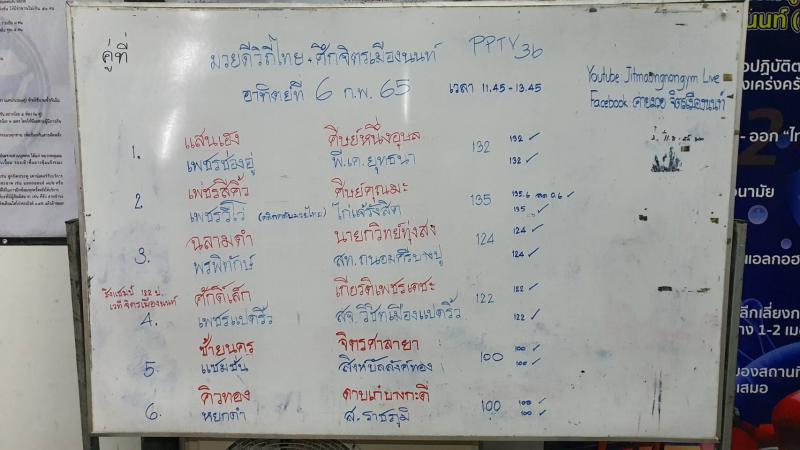 คู่ที่
มวยดีวิถีไทย + ศึกจิตรเมืองนนท์ PPTV 36
อาทิตย์ที่ 6 ก.พ. 65 เวลา 11.45 - 13.45
Youtube Jitmaungnongym Live
Facebook ค่ายมวย จิตรเมืองนนท์
1. แสนเฮง ศิษย์หนึ่งอุบล 132 132 ✓
เพชรช่องอู่ พี.เค.ยุทธนา 132 ✓
2 เพชรสีคิ้ว ศิษย์คุณมะ 135 135.6 ลด 0.6 ✓
เพชรริโว่ ไก่แจ้รังสิต 135 ✓
3. ฉลามดำ นายกวิทย์ทุ่งสง 124 124 ✓
พรพิทักษ์ สท.ถนอมศรีบางปู 124 ✓
ชิงแชมป์ 122 ป.
เวทีจิตรเมืองนนท์
4. ศักดิ์เล็ก เกียรติเพชรเดชะ 122 122 ✓
เพชรแปดริ้ว สจ.วิชิตเมืองแปดริ้ว 122 ✓
5. ซ้ายนคร จิตรศาลายา 100 100 ✓
แชมชัน สิงห์บัลลังค์ทอง 100 ✓
6. คิวทอง ดาบเก๋บางกะดี่ 100 100 ✓
หยกดำ ส.ราชภูมิ 100 ✓
นนท์ (
อปฏิบัติต
งเคร่งครั
- ออก "ไท
นามัย
แอลกอฮ
ลีกเลี่ยงก
าง 1-2 เม
มองสถานที่
เสมอ